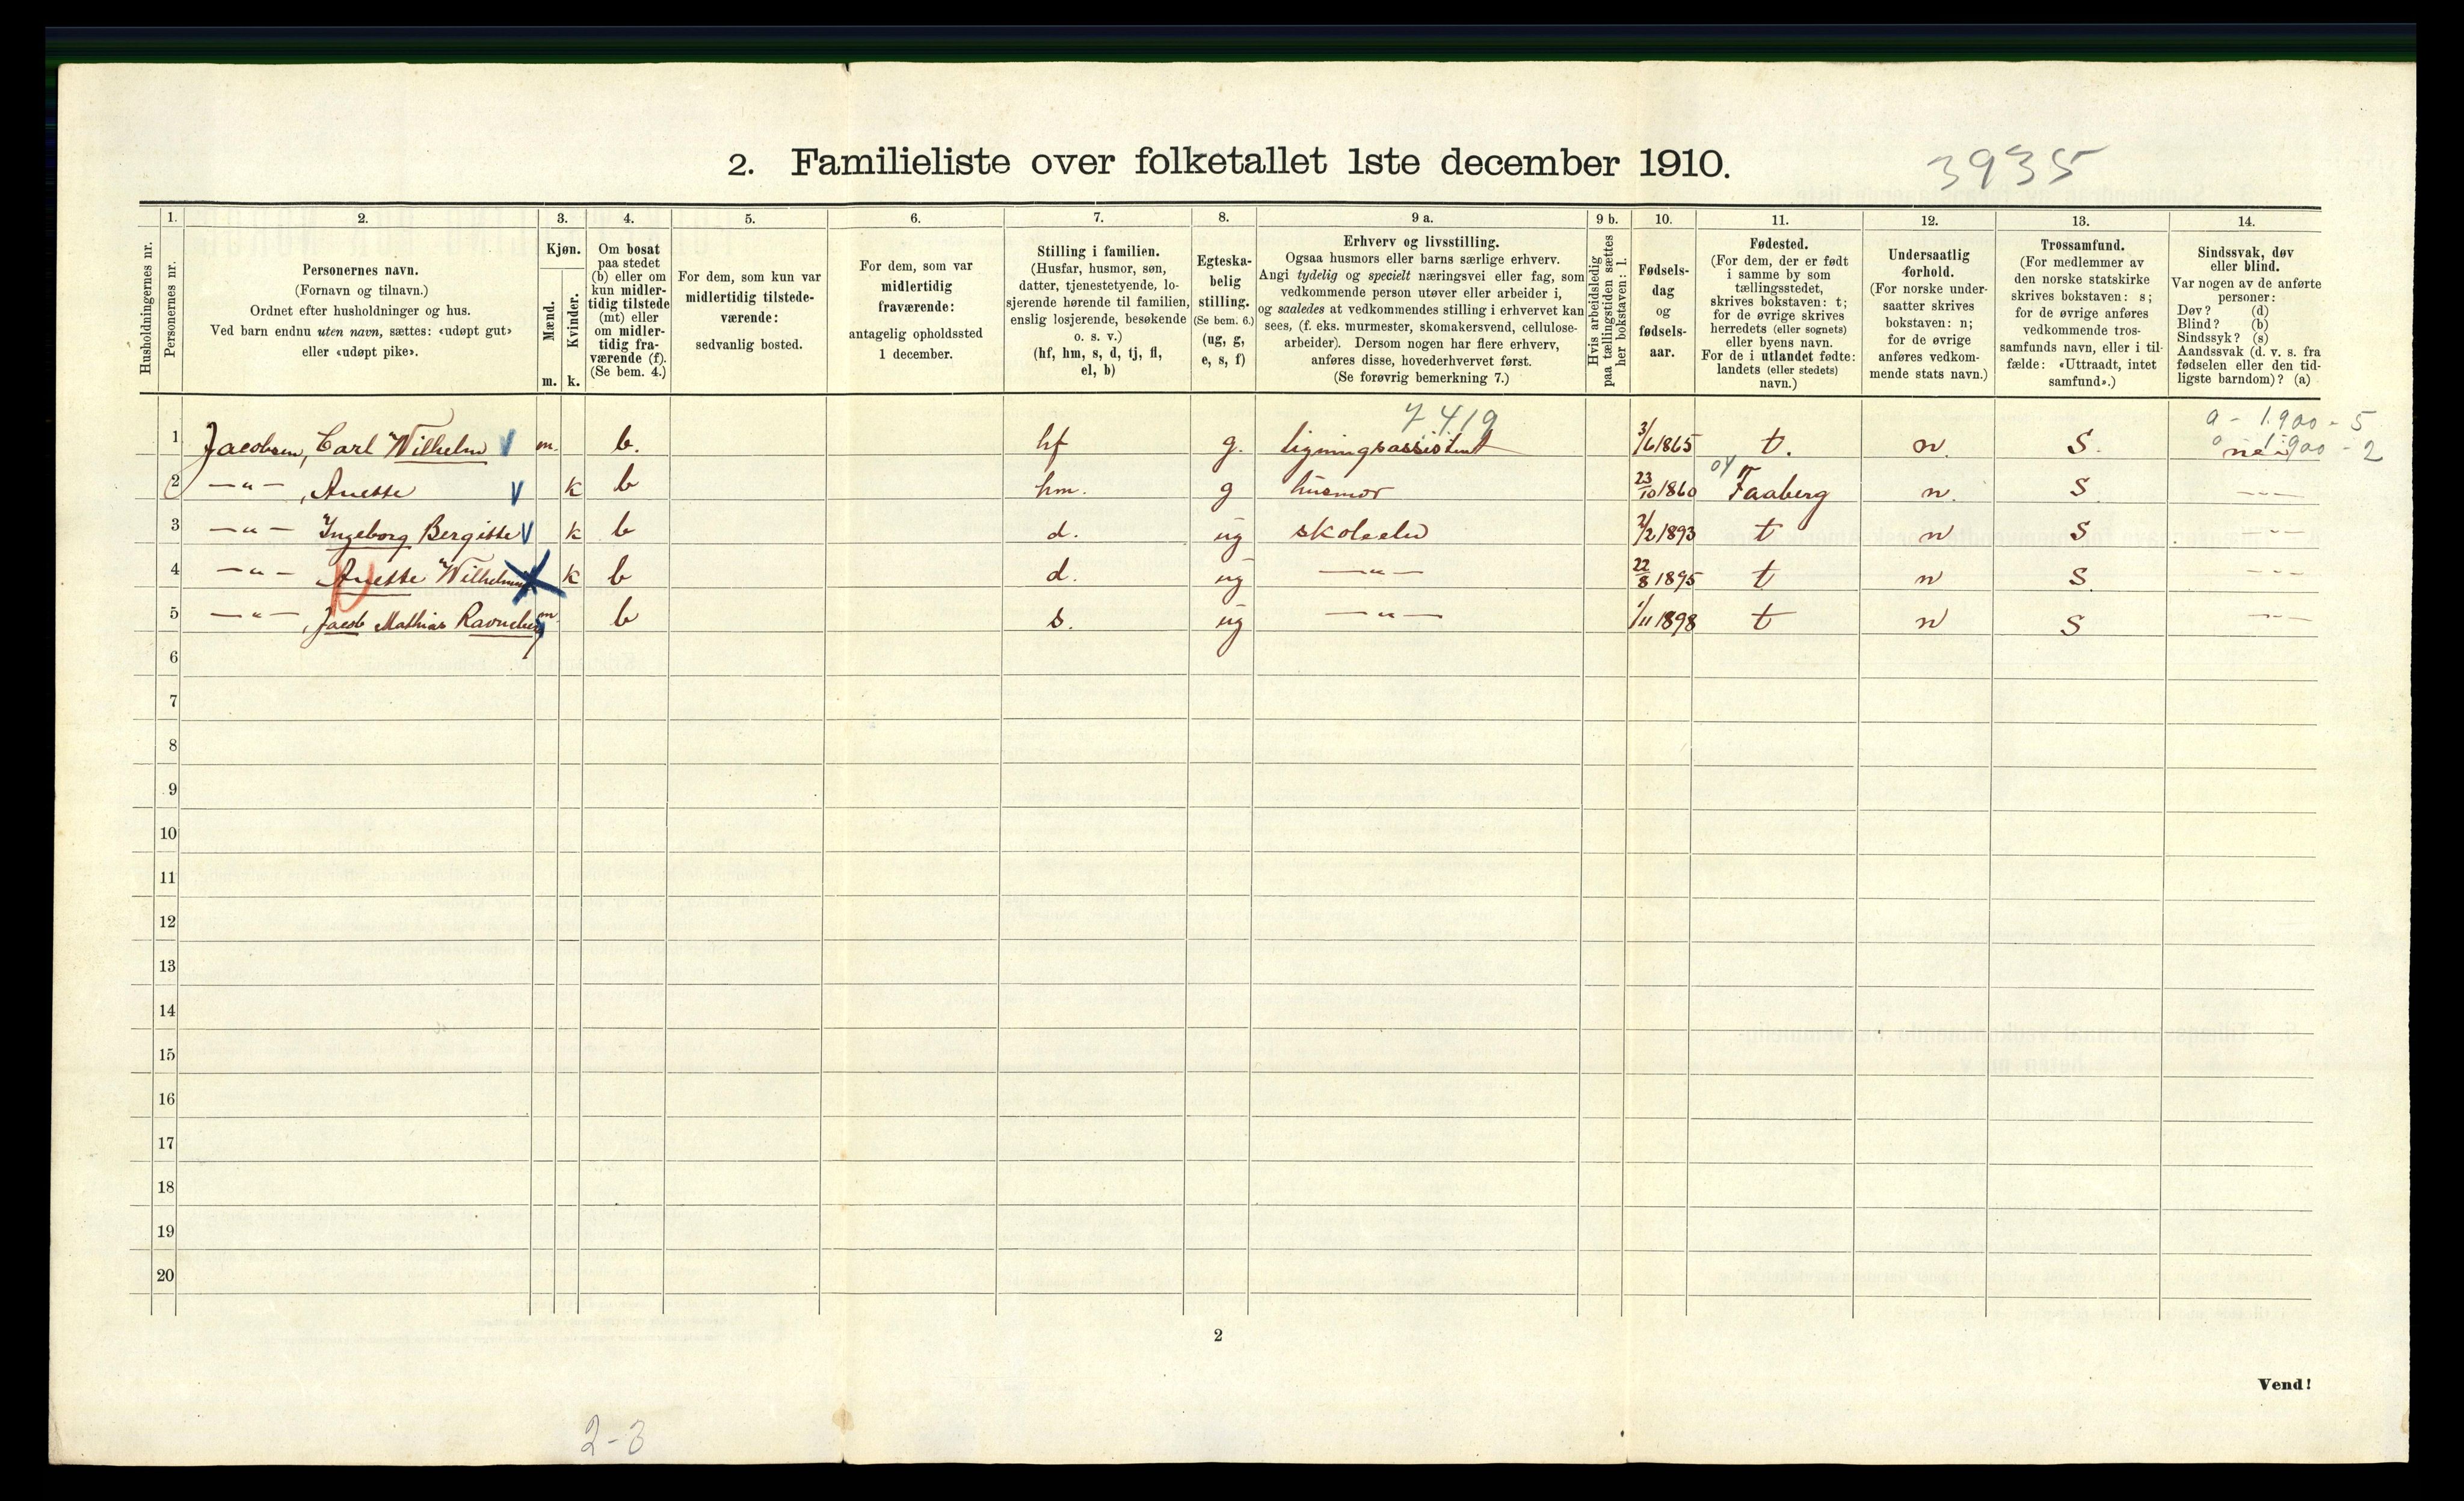 2. Familieliste over folketallet 1ste december 1910.
3935
Husholdningernes nr.
1.
Personernes nr.
2.
Personernes navn.
(Fornavn og tilnavn.)
Ordnet efter husholdninger og hus.
Ved barn endnu uten navn, sættes: «udøpt gut»
eller «udøpt pike».
3.
Kjøn.
Mænd.
Kvinder.
m.
k.
4.
Om bosat
paa stedet
(b) eller om
kun midler-
tidig tilstede
(mt) eller
om midler-
tidig fra-
værende (f).
(Se bem. 4.)
5.
For dem, som kun var
midlertidig tilstede-
værende:
sedvanlig bosted.
6.
For dem, som var
midlertidig
fraværende:
antagelig opholdssted
1 december.
7.
Stilling i familien.
(Husfar, husmor, søn,
datter, tjenestetyende, lo-
sjerende hørende til familien,
enslig losjerende, besøkende
o. s. v.)
(hf, hm, s, d, tj, fl,
el, b)
8.
Egteska-
belig
stilling.
(Se bem. 6.)
(ug, g,
e, s, f)
9 a.
Erhverv og livsstilling.
Ogsaa husmors eller barns særlige erhverv.
Angi tydelig og specielt næringsvei eller fag, som
vedkommende person utøver eller arbeider i,
og saaledes at vedkommendes stilling i erhvervet kan
sees, (f. eks. murmester, skomakersvend, cellulose-
arbeider). Dersom nogen har flere erhverv,
anføres disse, hovederhvervet først.
(Se forøvrig bemerkning 7.)
9 b.
Hvis arbeidsledig
paa tællingstiden sættes
her bokstaven: l.
10.
Fødsels-
dag
og
fødsels-
aar.
11.
Fødested.
(For dem, der er født
i samme by som
tællingsstedet,
skrives bokstaven: t;
for de øvrige skrives
herredets (eller sognets)
eller byens navn.
For de i utlandet fødte:
landets (eller stedets)
navn.)
12.
Undersaatlig
forhold.
(For norske under-
saatter skrives
bokstaven: n;
for de øvrige
anføres vedkom-
mende stats navn.)
13.
Trossamfund.
(For medlemmer av
den norske statskirke
skrives bokstaven: s;
for de øvrige anføres
vedkommende tros-
samfunds navn, eller i til-
fælde: «Uttraadt, intet
samfund».)
14.
Sindssvak, døv
eller blind.
Var nogen av de anførte
personer:
Døv? (d)
Blind? (b)
Sindssyk? (s)
Aandssvak (d. v. s. fra
fødselen eller den tid-
ligste barndom)? (a)
7419
a - 1.900 - 5
1 Jacobsen, Carl Wilhelm V m. b. hf g. ligningsassistent 3/6 1865 t. n. S. nei 1900 - 2
2 —"— , Anette V k b hm. g husmor 23/10 1860 Faaberg n. S —"—
3 —"— Ingeborg Bergitte V k b d. ug skoleelev 2/2 1893 t n S —"—
4 —"— Anette k b d. ug —"— 22/8 1895 t n S. —"—
5 —"— , Jacob Mathias Ravneberg m. b s. ug —"— 1/11 1898 t n S —"—
6
7
8
9
10
11
12
13
14
15
16
17
18
19
20
2
Vend!
2-3